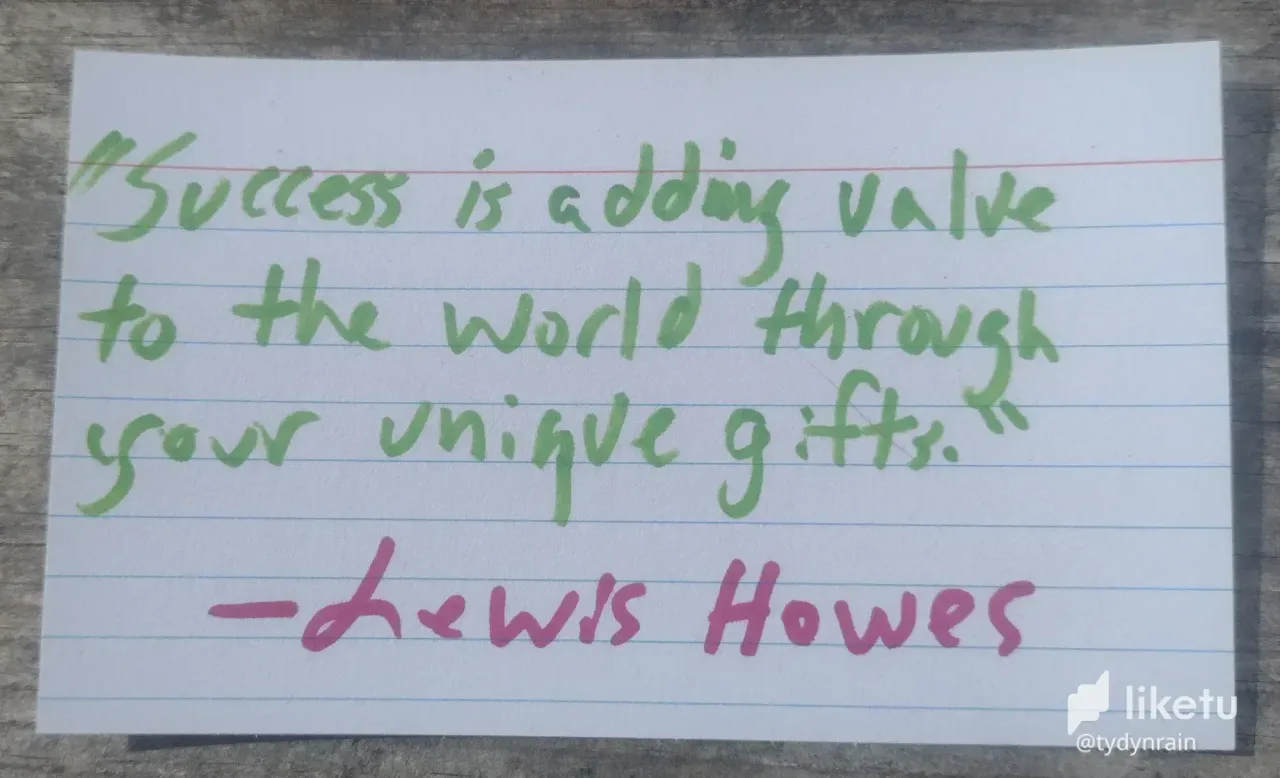 "Success is adding value
to the world through
your unique gifts."
—Lewis Howes
liketu
@tydynrain